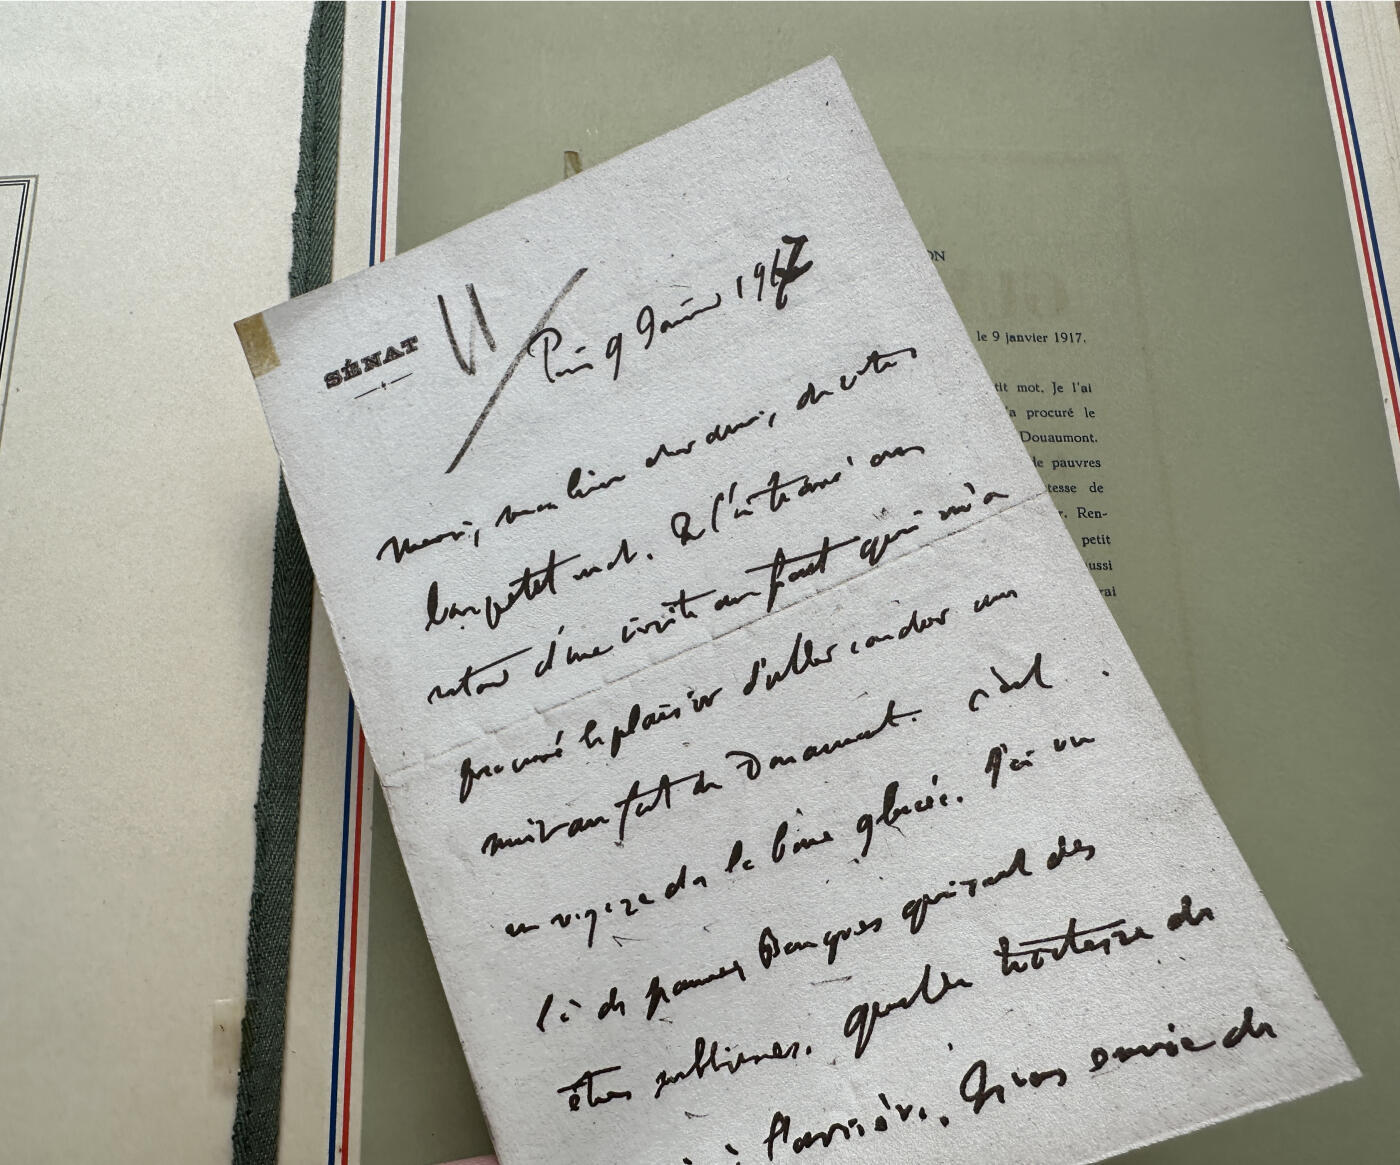 SÉNAT
Paris 9 Janvier 1917
Merci, mon bien cher ami, de votre
bon petit mot. Je l'ai trouvé au
retour d'une visite au front qui m'a
procuré le plaisir d'aller coucher une
nuit au fort de Douaumont. C'est
un voyage dans la boue glacée. J'ai vu
là de pauvres Bougres qui sont des
êtres sublimes. Quelle tristesse de
à l'arrière. Je vous envie de
ON
le 9 janvier 1917.
tit mot. Je l'ai
'a procuré le
Douaumont.
de pauvres
tesse de
r. Ren-
petit
ussi
rai